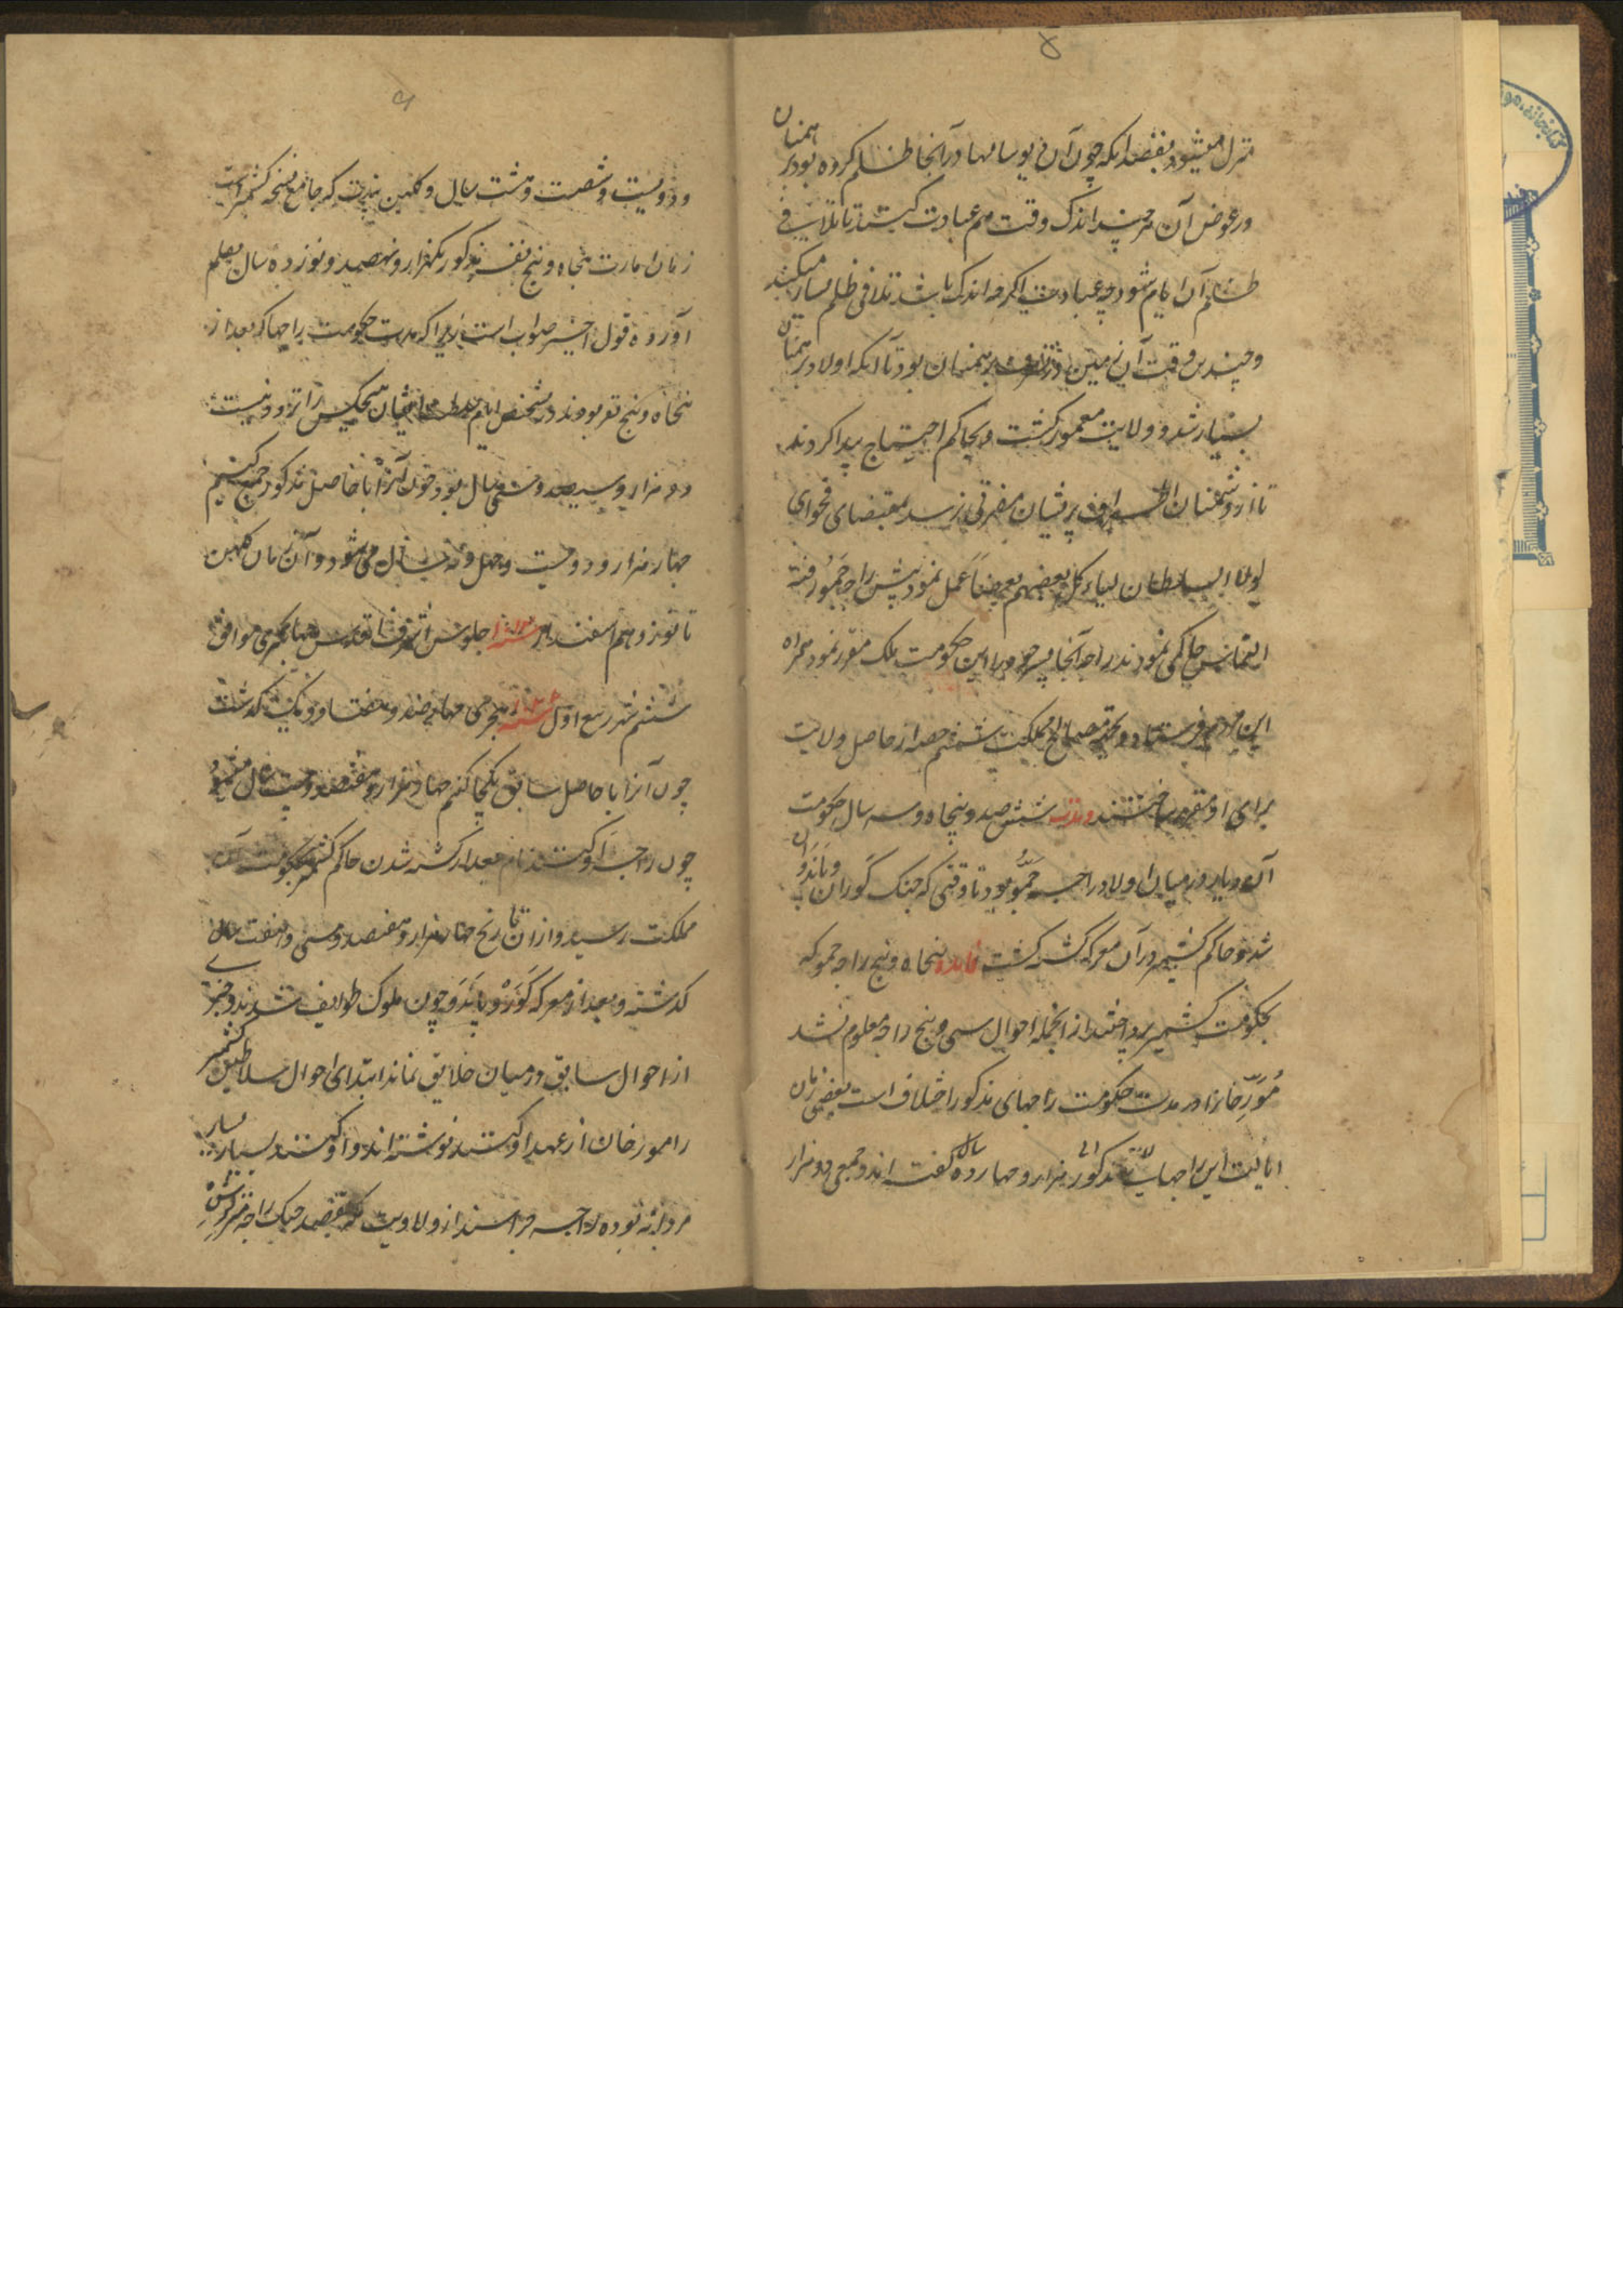 منزل میشود بقصد انکه چون آن دیو سالها در آنجا ظلم کرده بود برهمنان
در عوض آن هر چند اندک وقت هم عبادت کنند تا تلافی
ظلم آن ایام شود چه عبادت اگرچه اندک باشد تلافی ظلم بسیار میکند
و چندین وقت آن زمین در تصرف برهمنان بود تا آنکه اولاد برهمنان
بسیار شد و ولایت معمور گشت و بحاکم احتیاج پیدا کردند
تا از دشمنان اطراف بر ایشان مضرتی نرسد بمقتضای فحوای
لولا السلطان لیاکل بعضهم بعضا عمل نموده پیش راجه جمو رفته
التماس حاکمی نمودند راجه آنجا پسر خود را باین حکومت ملک مقرر نمود همراه
این مردم فرستاد و بجهة مصالح مملکت ششم حصه از حاصل ولایت
برای او مقرر ساختند و مدت ششصد و پنجاه و سه سال حکومت
آن دیار در میان اولاد راجه جمو بود تا وقتی که جنگ کوران و پاندوان
شد و حاکم کشمیر در آن معرکه کشته گشت پنجاه و پنج راجه جمو که
بحکومت کشمیر پرداختند از انجمله احوال سی و پنج راجه معلوم نشد
مورخانرا در مدت حکومت راجهای مذکور اختلاف است بعضی زمان
ایالت این راجهای مذکور هزار و چهارده سال گفته اند و جمعی دو هزار
و دویست و شصت و هشت سال و کلهن پندت که جامع نسخه کشمیر است
زمان امارت پنجاه و پنج نفر مذکور یکهزار و نهصد و نوزده سال بقلم
آورده قول اخیر صواب است زیرا که مدت حکومت راجها که بعد از
پنجاه و پنج نفر بودند در تشخص ایام سلطنت ایشان هیچکس را تردد نیست
دو هزار و سیصد و سی سال بود چون آنرا با حاصل مذکور جمع کنیم
چهار هزار و دویست و چهل و نه سال می شود و از زمان کلهن
تا نوزدهم اسفندیار جلوس اشرف اقدس جهانگیری موافق
ششم شهر ربیع اول هجری چهارصد و هفتاد و یک گذشت
چون آنرا با حاصل سابق یکجا کنم چهار هزار و هفتصد و بیست سال میشود
چون راجه اوکنند نام بعد از کشته شدن حاکم کشمیر بحکومت آن
مملکت رسید و از ان تاریخ چهار هزار و هفتصد و سی و هفت سال
گذشته و بعد از معرکه کورو و پاندو چون ملوک طوایف شدند و خبری
از احوال سابق در میان خلایق نماند ابتدای احوال سلاطین کشمیر
را مورخان از عهد اوکنند نوشته اند و اوکنند بسیار بسیار
مردانه بوده راجه جراسند از ولایت که بقصد جنگ راجه سرکرشن